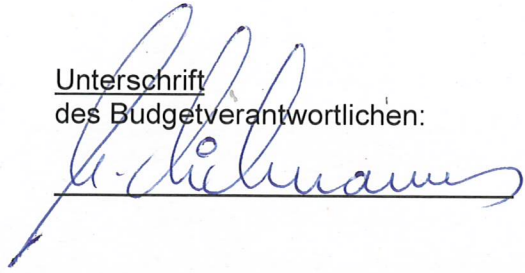 Unterschrift
des Budgetverantwortlichen: